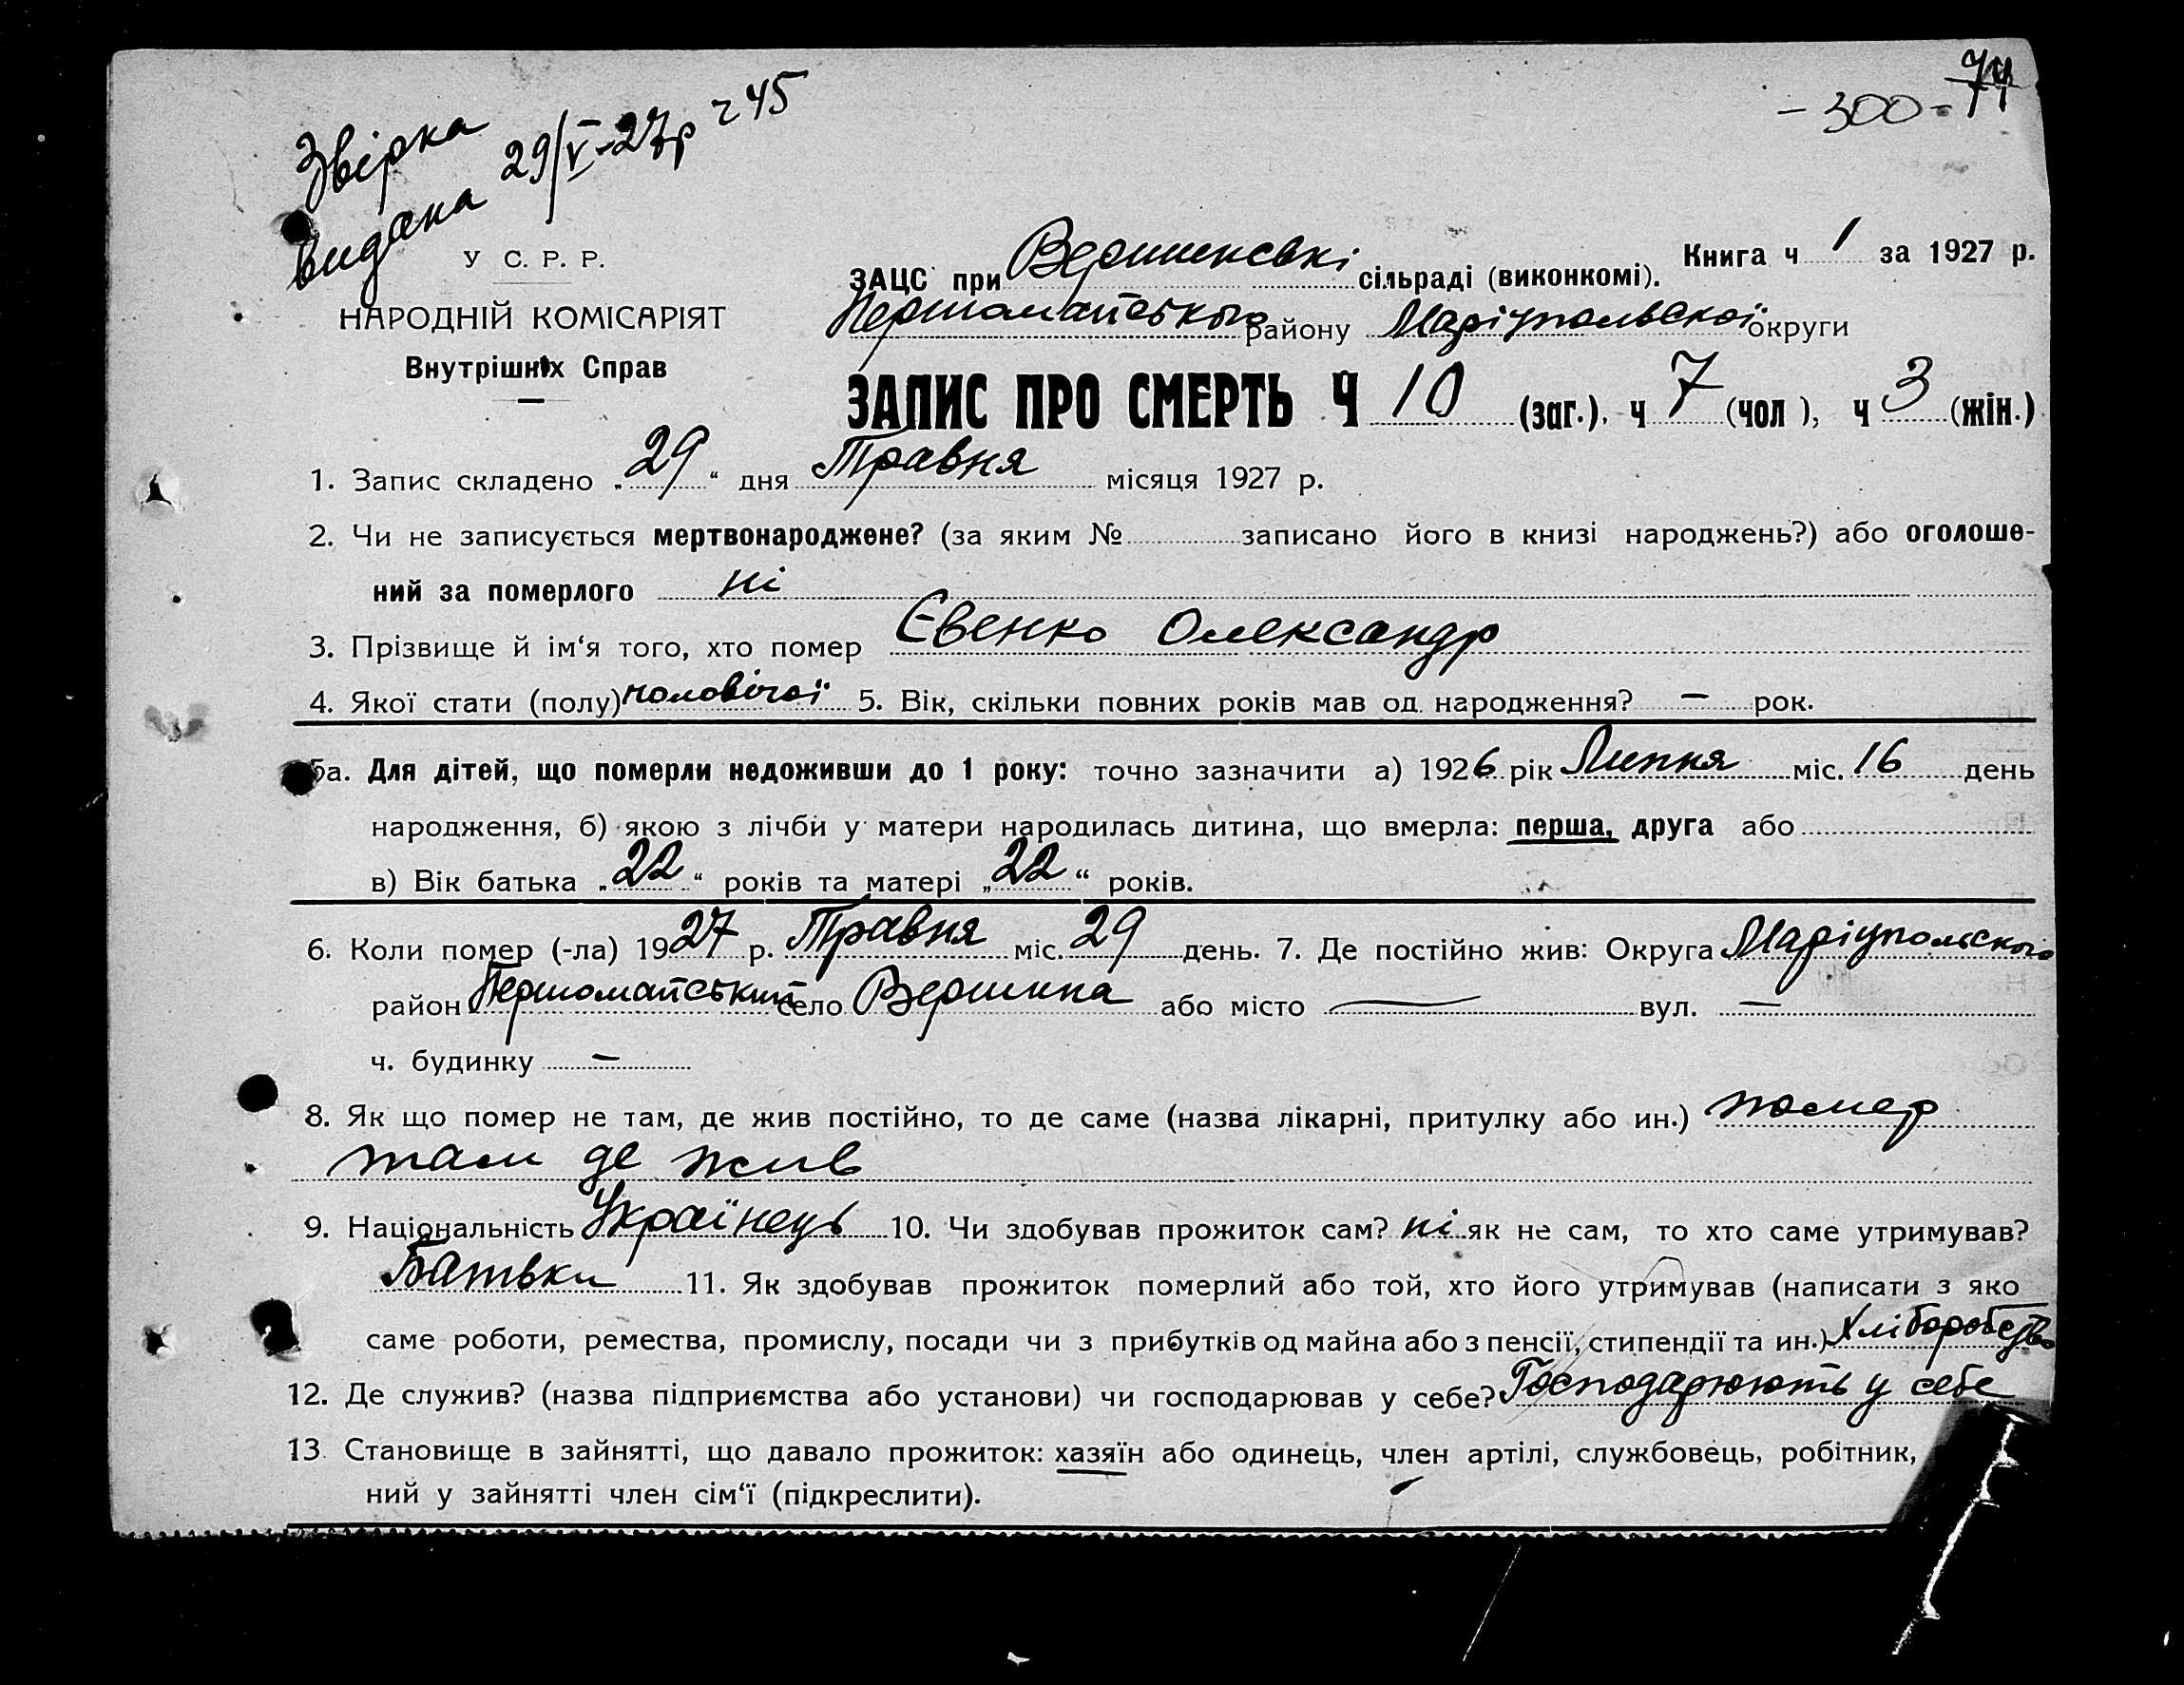 - 300 - 74
Звірка
видана 29/V-27р ч 45
У С. Р. Р.
НАРОДНІЙ КОМІСАРІЯТ
Внутрішніх Справ
Книга ч 1 за 1927 р.
ЗАЦС при Вершинські сільраді (виконкомі).
Першомайського району Маріупольської округи
ЗАПИС ПРО СМЕРТЬ Ч 10 (заг.), ч 7 (чол ), ч 3 (жін.)
1. Запис складено „29“ дня Травня місяця 1927 р.
2. Чи не записується мертвонароджене? (за яким № записано його в книзі народжень?) або оголоше-
ний за померлого ні
3. Прізвище й ім‘я того, хто помер Євенко Олександр
4. Якої стати (полу) чоловічої 5. Вік, скільки повних років мав од народження? — рок.
5а. Для дітей, що померли недоживши до 1 року: точно зазначити а) 1926 рік Липня міс. 16 день
народження, б) якою з лічби у матери народилась дитина, що вмерла: перша, друга або
в) Вік батька „22“ років та матері „22“ років.
6. Коли помер (-ла) 1927 р. Травня міс. 29 день. 7. Де постійно жив: Округа Маріупольського
район Першомайський село Вершина або місто — вул. —
ч. будинку —
8. Як що помер не там, де жив постійно, то де саме (назва лікарні, притулку або ин.) помер
там де жив
9. Національність Українець 10. Чи здобував прожиток сам? ні як не сам, то хто саме утримував?
Батьки 11. Як здобував прожиток померлий або той, хто його утримував (написати з яко
саме роботи, ремества, промислу, посади чи з прибутків од майна або з пенсії, стипендії та ин.) Хліборобство
12. Де служив? (назва підприємства або установи) чи господарював у себе? Господарюють у себе
13. Становище в зайнятті, що давало прожиток: хазяїн або одинець, член артілі, службовець, робітник,
ний у зайнятті член сім‘ї (підкреслити).